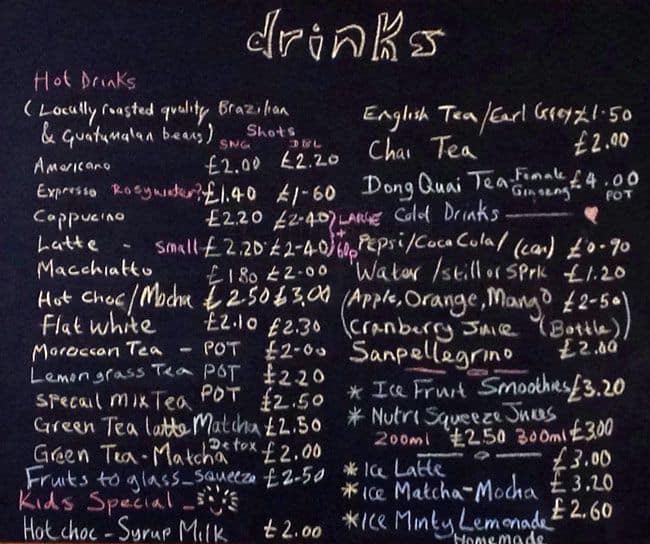 drinks
Hot Drinks
(Locally roasted quality Brazilian
& Guatumalan beans) Shots
SNG DBL
Americano £2.00 £2.20
Expresso Rosywater? £1.40 £1-60
Cappucino £2.20 £2-40
Latte - Small £2.20 £2-40 } LARGE + 60p
Macchiatto £1.80 £2-00
Hot Choc/Mocha £2.50 £3.00
Flat white £2.10 £2.30
Moroccan Tea - POT £2-00
Lemongrass Tea POT £2.20
Specail Mix Tea POT £2.50
Green Tea latte Matcha £2.50
Green Tea - Matcha Detox £2.00
Fruits to glass_squeeze £2-50
Kids Special -
Hot choc - Syrup Milk £2.00
English Tea/Earl Grey £1.50
Chai Tea £2.00
Dong Quai Tea Female Ginseng £4.00 POT
Cold Drinks
Pepsi/Coca Cola/ (can) £0-90
Water /still or Sprk £1.20
(Apple, Orange, Mango £2-50)
(Cranberry Juice (Bottle))
Sanpellegrino £2.00
* Ice Fruit Smoothies £3.20
* Nutri Squeeze Juices
200ml £2.50 300ml £3.00
*Ice Latte £3.00
*Ice Matcha-Mocha £3.20
*Ice Minty Lemonade £2.60
Homemade